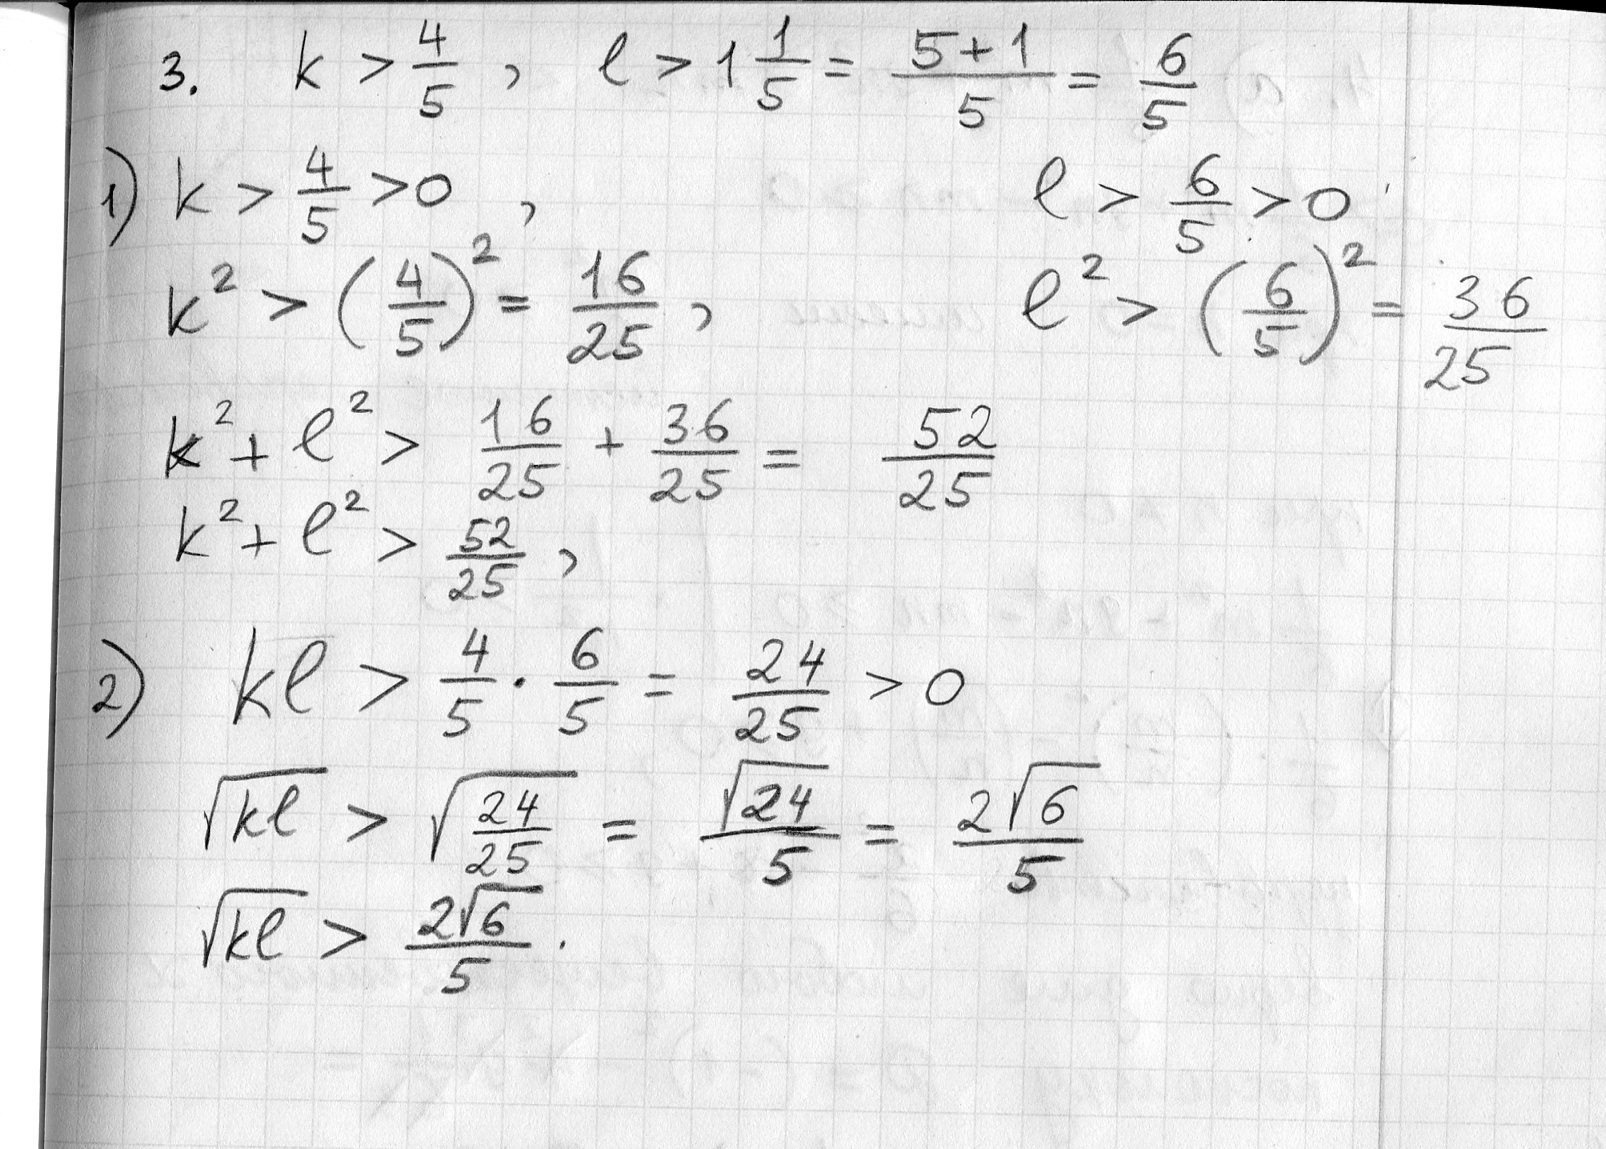 3. k > 4/5 , l > 1 1/5 = (5+1)/5 = 6/5
1) k > 4/5 > 0 , l > 6/5 > 0
k² > (4/5)² = 16/25 , l² > (6/5)² = 36/25
k² + l² > 16/25 + 36/25 = 52/25
k² + l² > 52/25 ,
2) kl > 4/5 · 6/5 = 24/25 > 0
√kl > √(24/25) = √24/5 = 2√6/5
√kl > 2√6/5 .